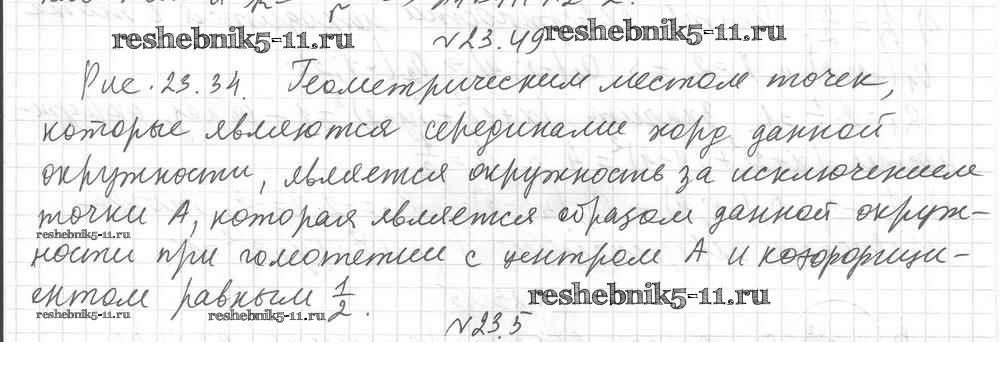 reshebnik5-11.ru
№23.49
reshebnik5-11.ru
Рис. 23.34. Геометрическим местом точек,
которые являются серединами хорд данной
окружности, является окружность за исключением
точки А, которая является образом данной окруж-
reshebnik5-11.ru
ности при гомотетии с центром А и коэффици-
ентом равным 1/2.
reshebnik5-11.ru
reshebnik5-11.ru
reshebnik5-11.ru
№23.5